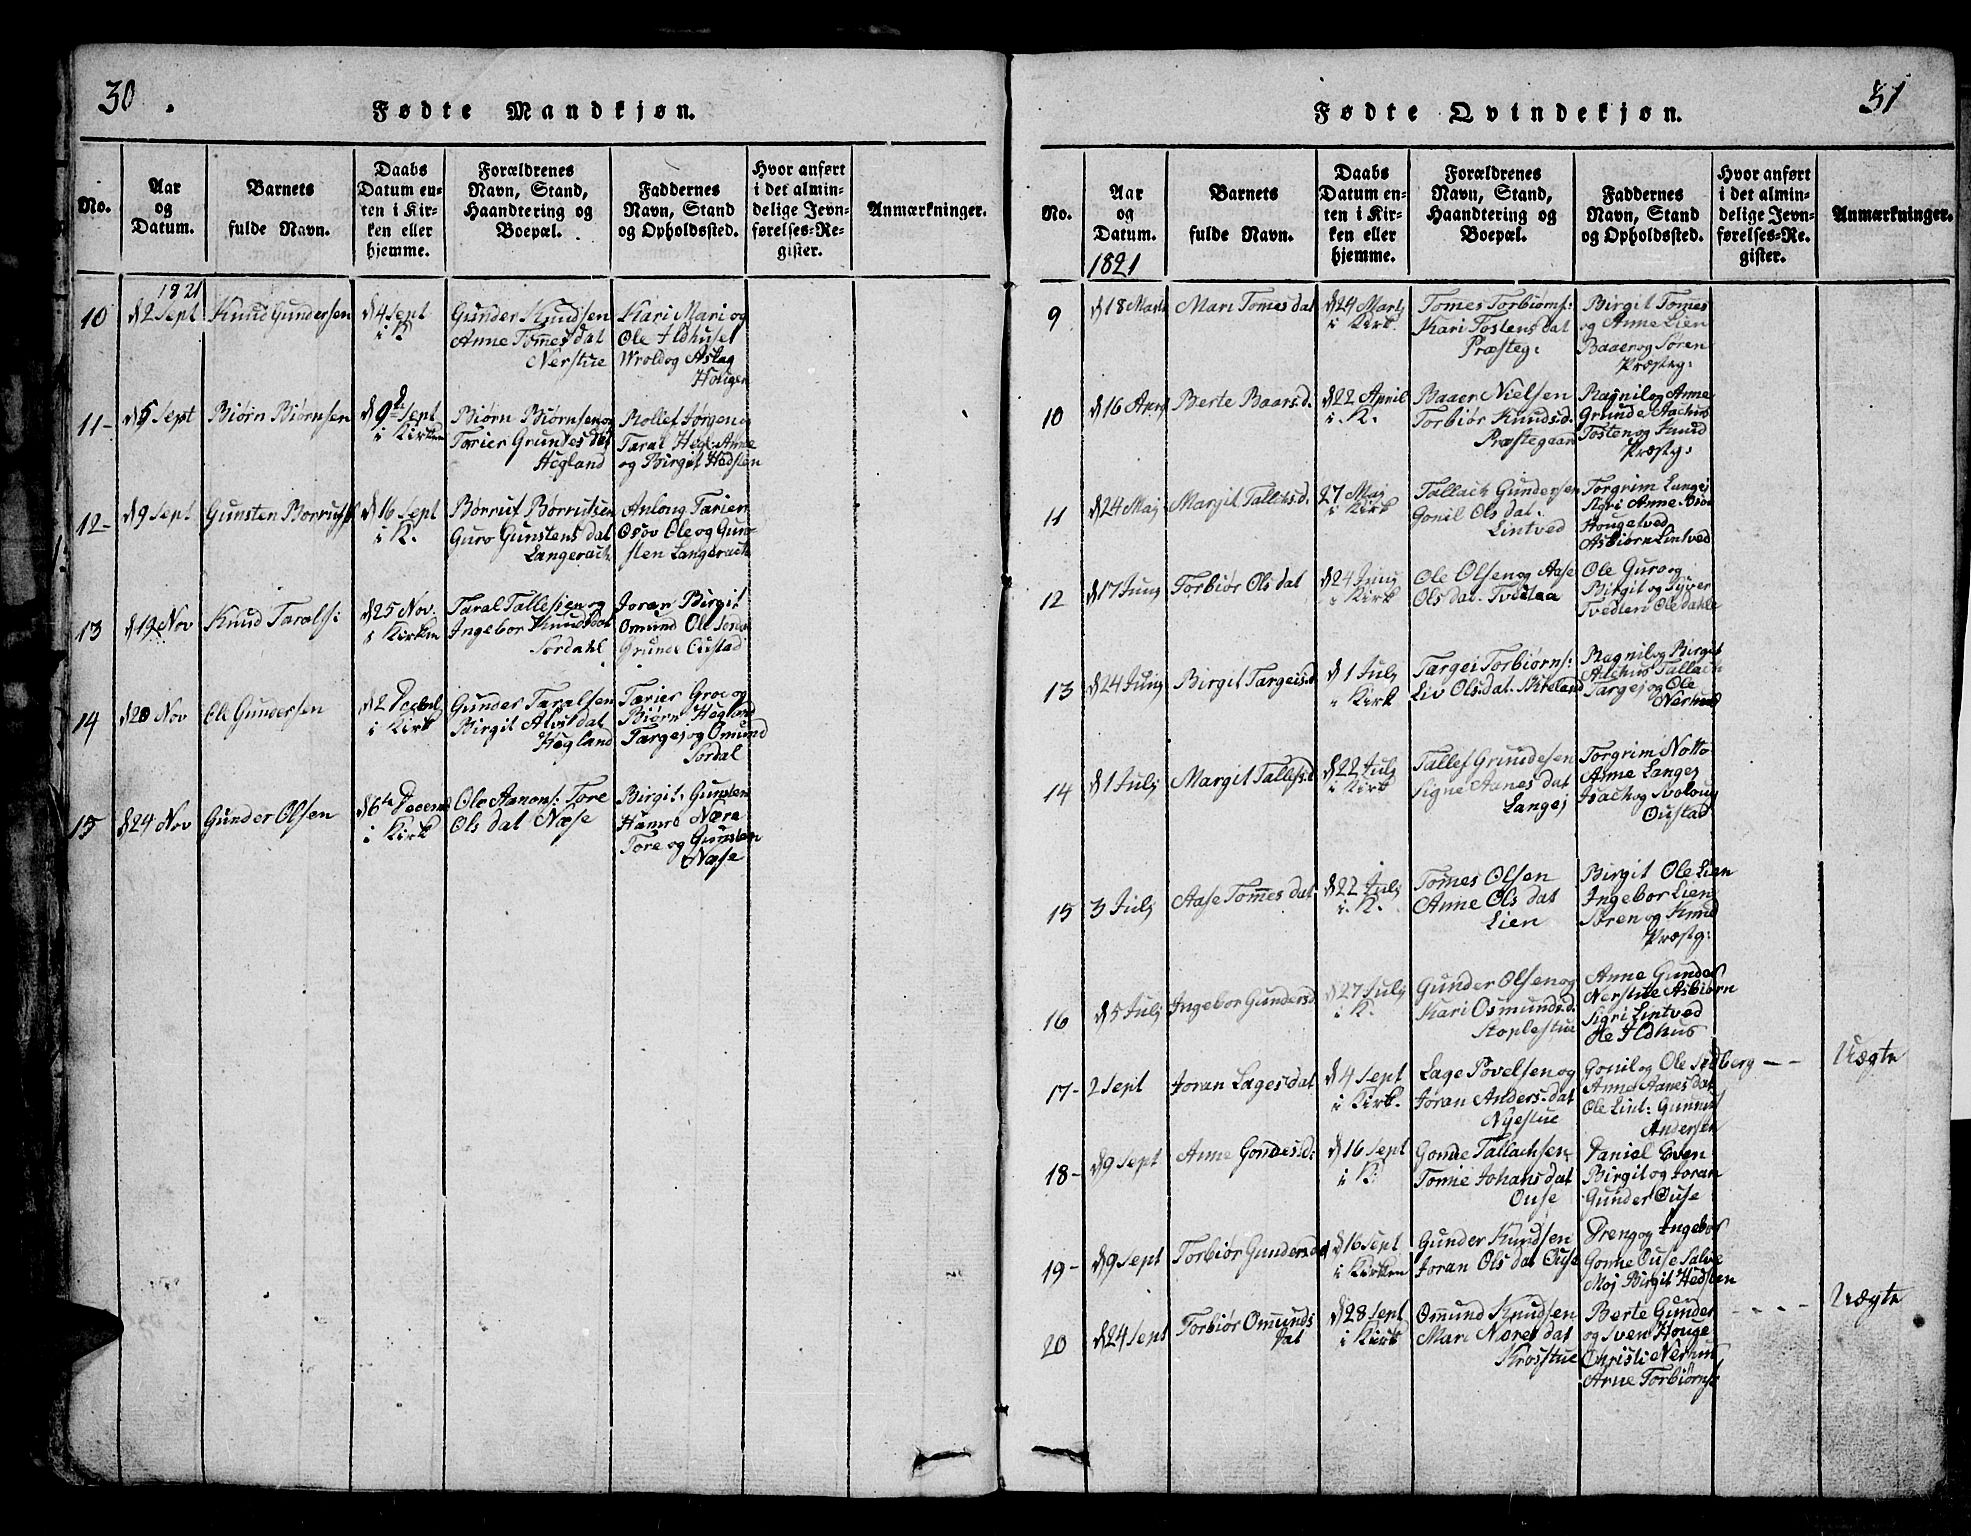 30
Fødte Mandkjøn.
No.
Aar
og
Datum.
Barnets
fulde Navn.
Daabs
Datum en-
ten i Kir-
ken eller
hjemme.
Forældrenes
Navn, Stand,
Haandtering og
Boepæl.
Faddernes
Navn, Stand
og Opholdssted.
Hvor anført
i det almin-
delige Jevn-
førelses-Re-
gister.
Anmærkninger.
1821
10
d 2 Sept
Knud Gundersen
d 4 Sept
i K
Gunder Knudsen
Anne Tomesdat
Nerstue
Kari Mari og
Ole Ildhuset
Wrold og Aslag
Hougen
11-
d 5 Sept
Biørn Biørnsen
d 9de Sept
i Kirken
Biørn Biørnsen og
Tarier Gruntesdat
Hegland
Rollef Jørgen og
Taral Hegl. Anne
og Birgit Hedsten
12-
d 9 Sept
Gunsten Borrufs.
d 16 Sept
i K.
Børruf Børrufsen
Guro Gunstensdat
Langerach
Anlong Tarier
Osov Ole og Gun-
sten Langerach
13
d 19 Nov
Knud Tarals:
d 25 Nov.
i Kirken
Taral Tallefsen og
Ingebor Knudsdat
Sordahl
Joran Birgit
Omund Ole Sorda
Grunde Oustad
14
d 20 Nov
Ole Gundersen
d 2 Decbr
i Kirk
Gunder Taralsen
Birgit Alvsdat
Hegland
Tarier Groe og
Biørn Hegland
Targej og Omund
Sordal
15
d 24 Nov
Gunder Olsen
d 6te Decemb
i Kirk
Ole Aanons: Tore
Olsdat Næse
Birgit Gunsten
Hamre Næra
Tore og Gunsten
Næse
31
Fødte Qvindekjøn.
No.
Aar
og
Datum.
1821
Barnets
fulde Navn.
Daabs
Datum en-
ten i Kir-
ken eller
hjemme.
Forældrenes
Navn, Stand,
Haandtering og
Boepæl.
Faddernes
Navn, Stand
og Opholdssted.
Hvor anført
i det almin-
delige Jevn-
førelses-Re-
gister.
Anmærkninger.
9
d 18 Marts
Mari Tomesdat
d 24 Marts
i Kirk.
Tomes Torbiørns:
Kari Tostensdat
Præsteg:
Birgit Tomes
og Anne Lien
Baaer og Søren
Præstg:
10
d 16 April
Berte Baarsd.
d 22 April
i. K.
Baaer Nielsen
Torbiør Knudsd.
Præstegaar
Ragnil og Anne
Grunde
Tosten og Knud
Præstg:
11
d 24 Maj
Margit Tallefsd.
27 Maj
i Kirk
Tallach Gundersen
Gonil Olsdat.
Lintved
Torgrim Langej
Sigri Anne
Hougetved
Asbiørn Lintved
12
d 17 Junj
Torbiør Olsdat
d 24 Junj
i Kirk
Ole Olsen og Aase
Olsdat. Tveitaa
Ole Guro og
Birgit og Syver
Tvedten Ole Dahle
13
d 24 Junj
Birgit Targeisd.
d 1 Julj
i Kirk
Targei Torbiørns:
Liv Olsdat. Birkeland
Ragnil og Birgit
Aachus Tallach
Targej og Ole
Nerhus
14
d 1 Julj
Margit Tallefs.d
d 22 Julj
i Kirk
Tallef Grundesen
Signe Aanesdat
Langej
Torgrim Notto
Anne Langej
Isach og Svoloug
Oustad
15
3 Julj
Aase Tommesdat
d 22 Julj
i. K.
Tomes Olsen
Anne Olsdat
Lien
Birgit Ole Lien
Ingebor Lien
Søren og Knud
Præstg:
16
d 5 Julj
Ingebor Gundersd
d 27 Julj
i K.
Gunder Olsen og
Kari Osmundsd.
Stoplestue
Anne Gunder
Nerstue Asbiørn
Sigri Lintved
Ole Ildhus
17-
2 Sept
Joran Lagesdat
d 4 Sept
i Kirk.
Lage Povelsen og
Jøran Andersdat
Nyestue
Gonil og Ole Sødberg - -
Anne Aanesdat
Ole Lint: Gunnuf
Andersen
Uægte
18-
d 9 Sept
Anne Gondesd:
d 16 Sept
i K
Gonde Tallachsen
Tomie Johansdat
Ouse
Daniel Even
Birgit og Joran
Gunder Ouse
19-
d 9 Sept
Torbiør Gundersdat
d 16 Sept
i Kirken
Gunder Knudsen
Joran Olsdat Ouse
Dreng og Ingebor
Gonne Ouse Salve
Moj Birgit Hedsten
20
d 24 Sept
Torbiør Omunds
dat
d 28 Sept
i Kirk
Omund Knudsen
Mari Næresdat
Krosstue
Berte Gunder - - - -
og Sven Houge
Christi Nerhus
Arne Torbiørns:
Uægte